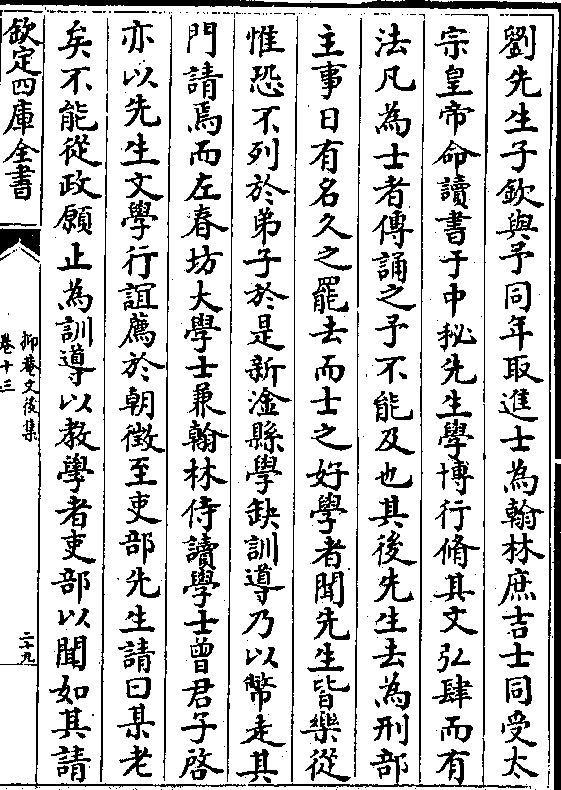 劉先生子欽與予同年取進士為翰林庶吉士同受太
宗皇帝命讀書于中秘先生學博行脩其文弘肆而有
法凡為士者傳誦之予不能及也其後先生去為刑部
主事日有名久之罷去而士之好學者聞先生皆樂從
惟恐不列於弟子於是新淦縣學缺訓導乃以幣走其
門請焉而左春坊大學士兼翰林侍讀學士曾君子啓
亦以先生文學行誼薦於朝徵至吏部先生請曰某老
矣不能從政願止為訓導以教學者吏部以聞如其請
欽定四庫全書
抑菴文後集
卷十三
二十九